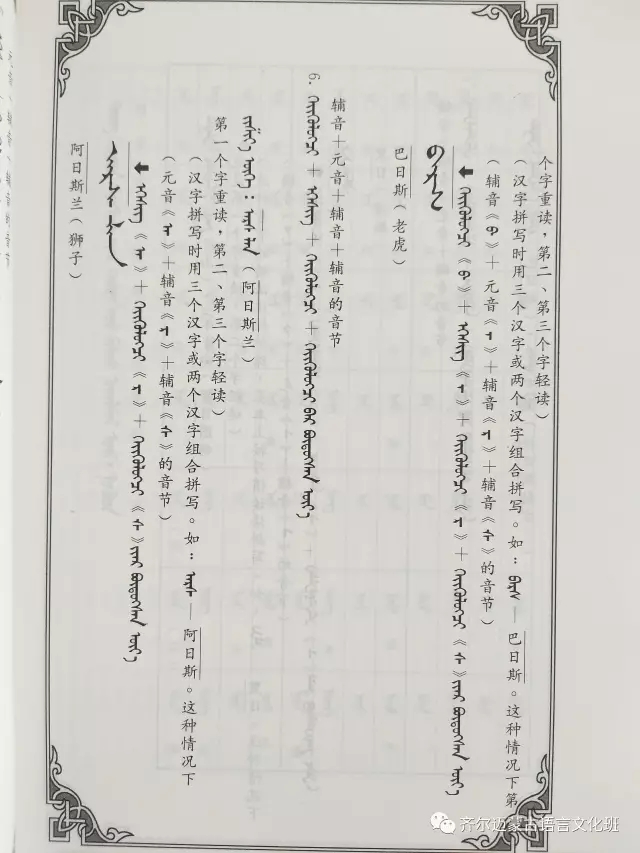 阿日斯兰（狮子）
ᠠᠷᠰᠯᠠᠨ
⬅ ᠡᠭᠡᠰᠢᠭ 《ᠠ》+ ᠭᠡᠶᠢᠭᠦᠯᠦᠭᠴᠢ 《ᠷ》+ ᠭᠡᠶᠢᠭᠦᠯᠦᠭᠴᠢ 《ᠰ》 ᠢᠶᠡᠷ ᠪᠦᠲᠦᠭᠰᠡᠨ ᠦᠶ᠎ᠡ
（元音《ᠠ》+辅音《ᠷ》+辅音《ᠰ》的音节）
（汉字拼写时用三个汉字或两个汉字组合拼写。如：ᠠᠷᠰ — 阿日斯。这种情况下
第一个字重读，第二、第三个字轻读）
ᠵᠢᠱᠢᠶ᠎ᠡ ᠦᠶ᠎ᠡ：ᠠᠷᠰ ᠯᠠᠨ（阿日斯兰）
6. ᠭᠡᠶᠢᠭᠦᠯᠦᠭᠴᠢ + ᠡᠭᠡᠰᠢᠭ + ᠭᠡᠶᠢᠭᠦᠯᠦᠭᠴᠢ + ᠭᠡᠶᠢᠭᠦᠯᠦᠭᠴᠢ ᠪᠡᠷ ᠪᠦᠲᠦᠭᠰᠡᠨ ᠦᠶ᠎ᠡ
辅音+元音+辅音+辅音的音节
巴日斯（老虎）
ᠪᠠᠷᠰ
⬅ ᠭᠡᠶᠢᠭᠦᠯᠦᠭᠴᠢ 《ᠪ》+ ᠡᠭᠡᠰᠢᠭ 《ᠠ》+ ᠭᠡᠶᠢᠭᠦᠯᠦᠭᠴᠢ 《ᠷ》+ ᠭᠡᠶᠢᠭᠦᠯᠦᠭᠴᠢ 《ᠰ》 ᠢᠶᠡᠷ ᠪᠦᠲᠦᠭᠰᠡᠨ ᠦᠶ᠎ᠡ
（辅音《ᠪ》+元音《ᠠ》+辅音《ᠷ》+辅音《ᠰ》的音节）
（汉字拼写时用三个汉字或两个汉字组合拼写。如：ᠪᠠᠷᠰ — 巴日斯。这种情况下第
个字重读，第二、第三个字轻读）
齐尔迈蒙古语言文化班